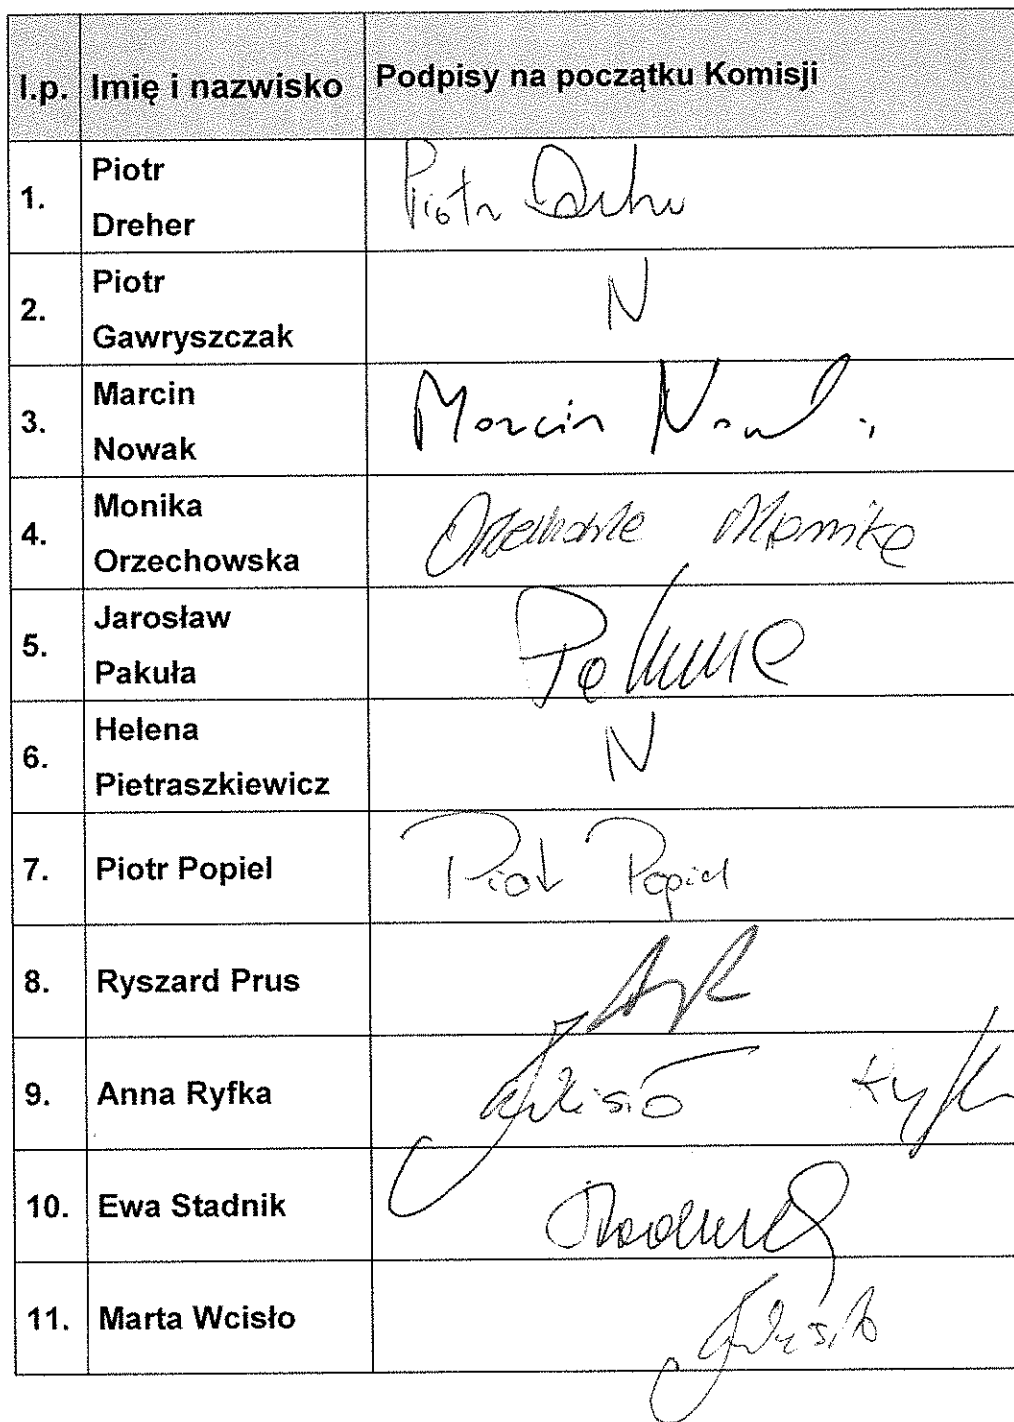 l.p. Imię i nazwisko Podpisy na początku Komisji
1. Piotr Dreher Piotr
2. Piotr Gawryszczak N
3. Marcin Nowak Marcin Nowak
4. Monika Orzechowska Monika
5. Jarosław Pakuła
6. Helena Pietraszkiewicz N
7. Piotr Popiel Piotr Popiel
8. Ryszard Prus
9. Anna Ryfka
10. Ewa Stadnik
11. Marta Wcisło